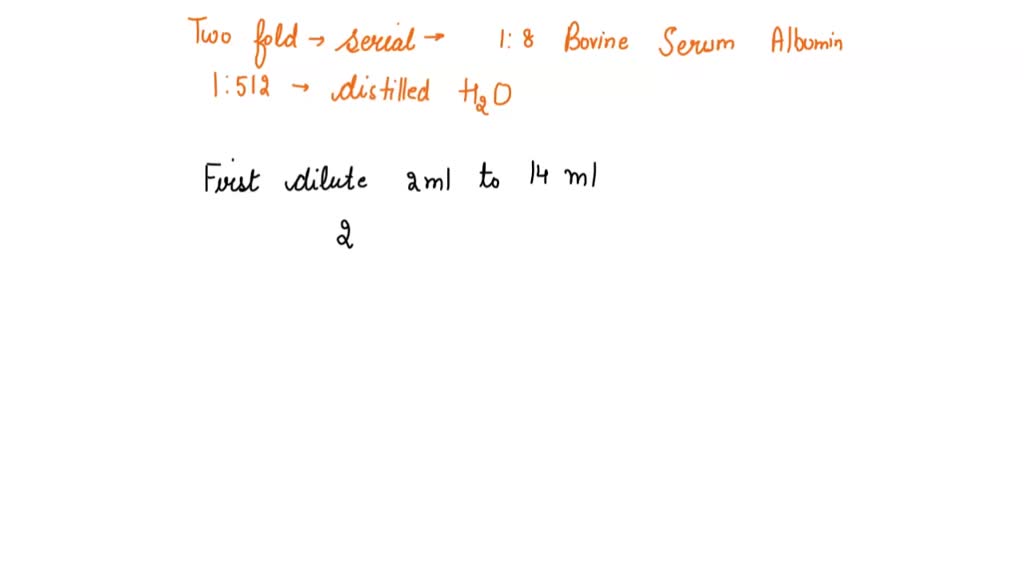 Two fold → serial → 1:8 Bovine Serum Albumin
1:512 → distilled H₂O
First dilute 2ml to 14 ml
2